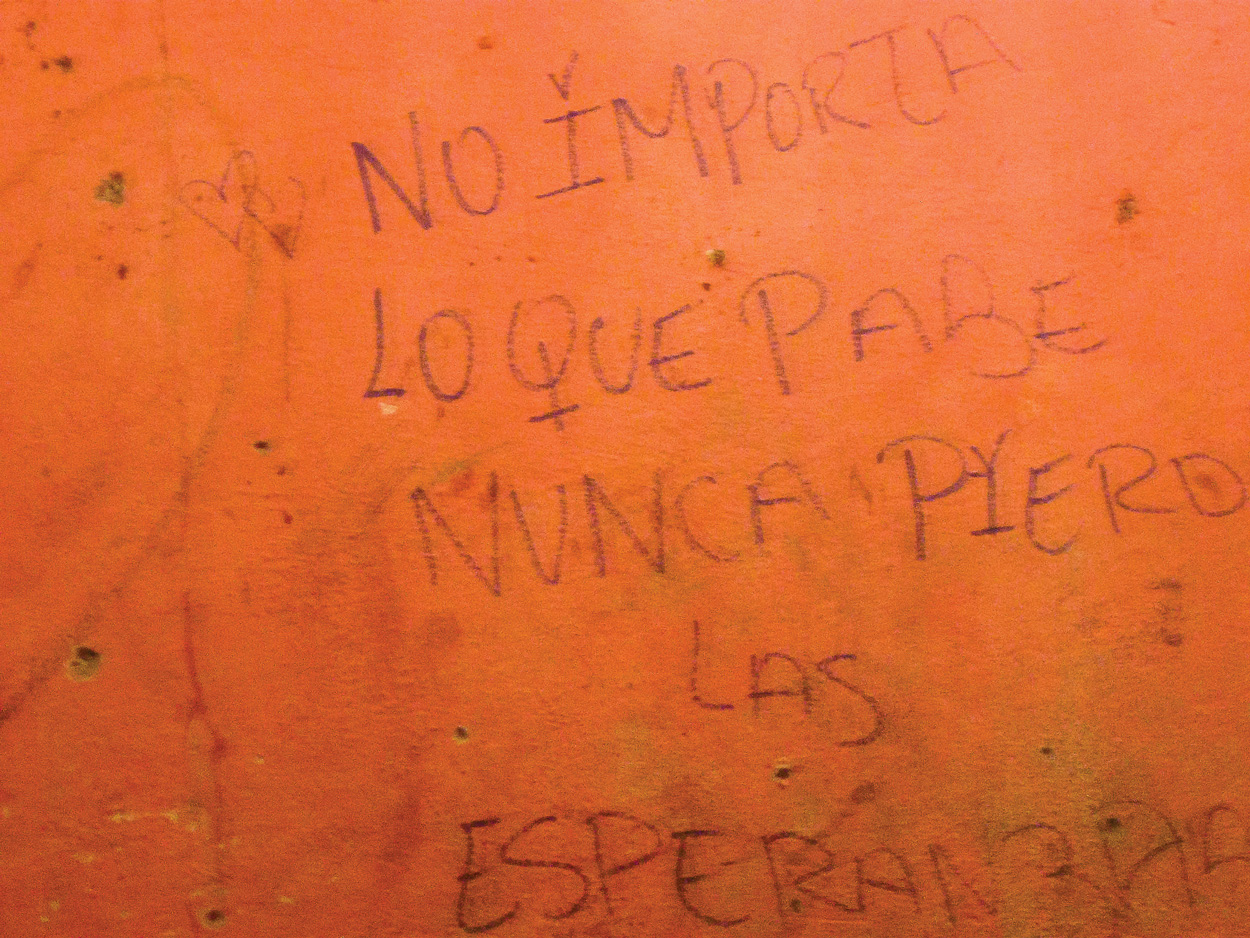 NO IMPORTA
LO QUE PASE
NUNCA PYERDO
LAS
ESPERANZAS